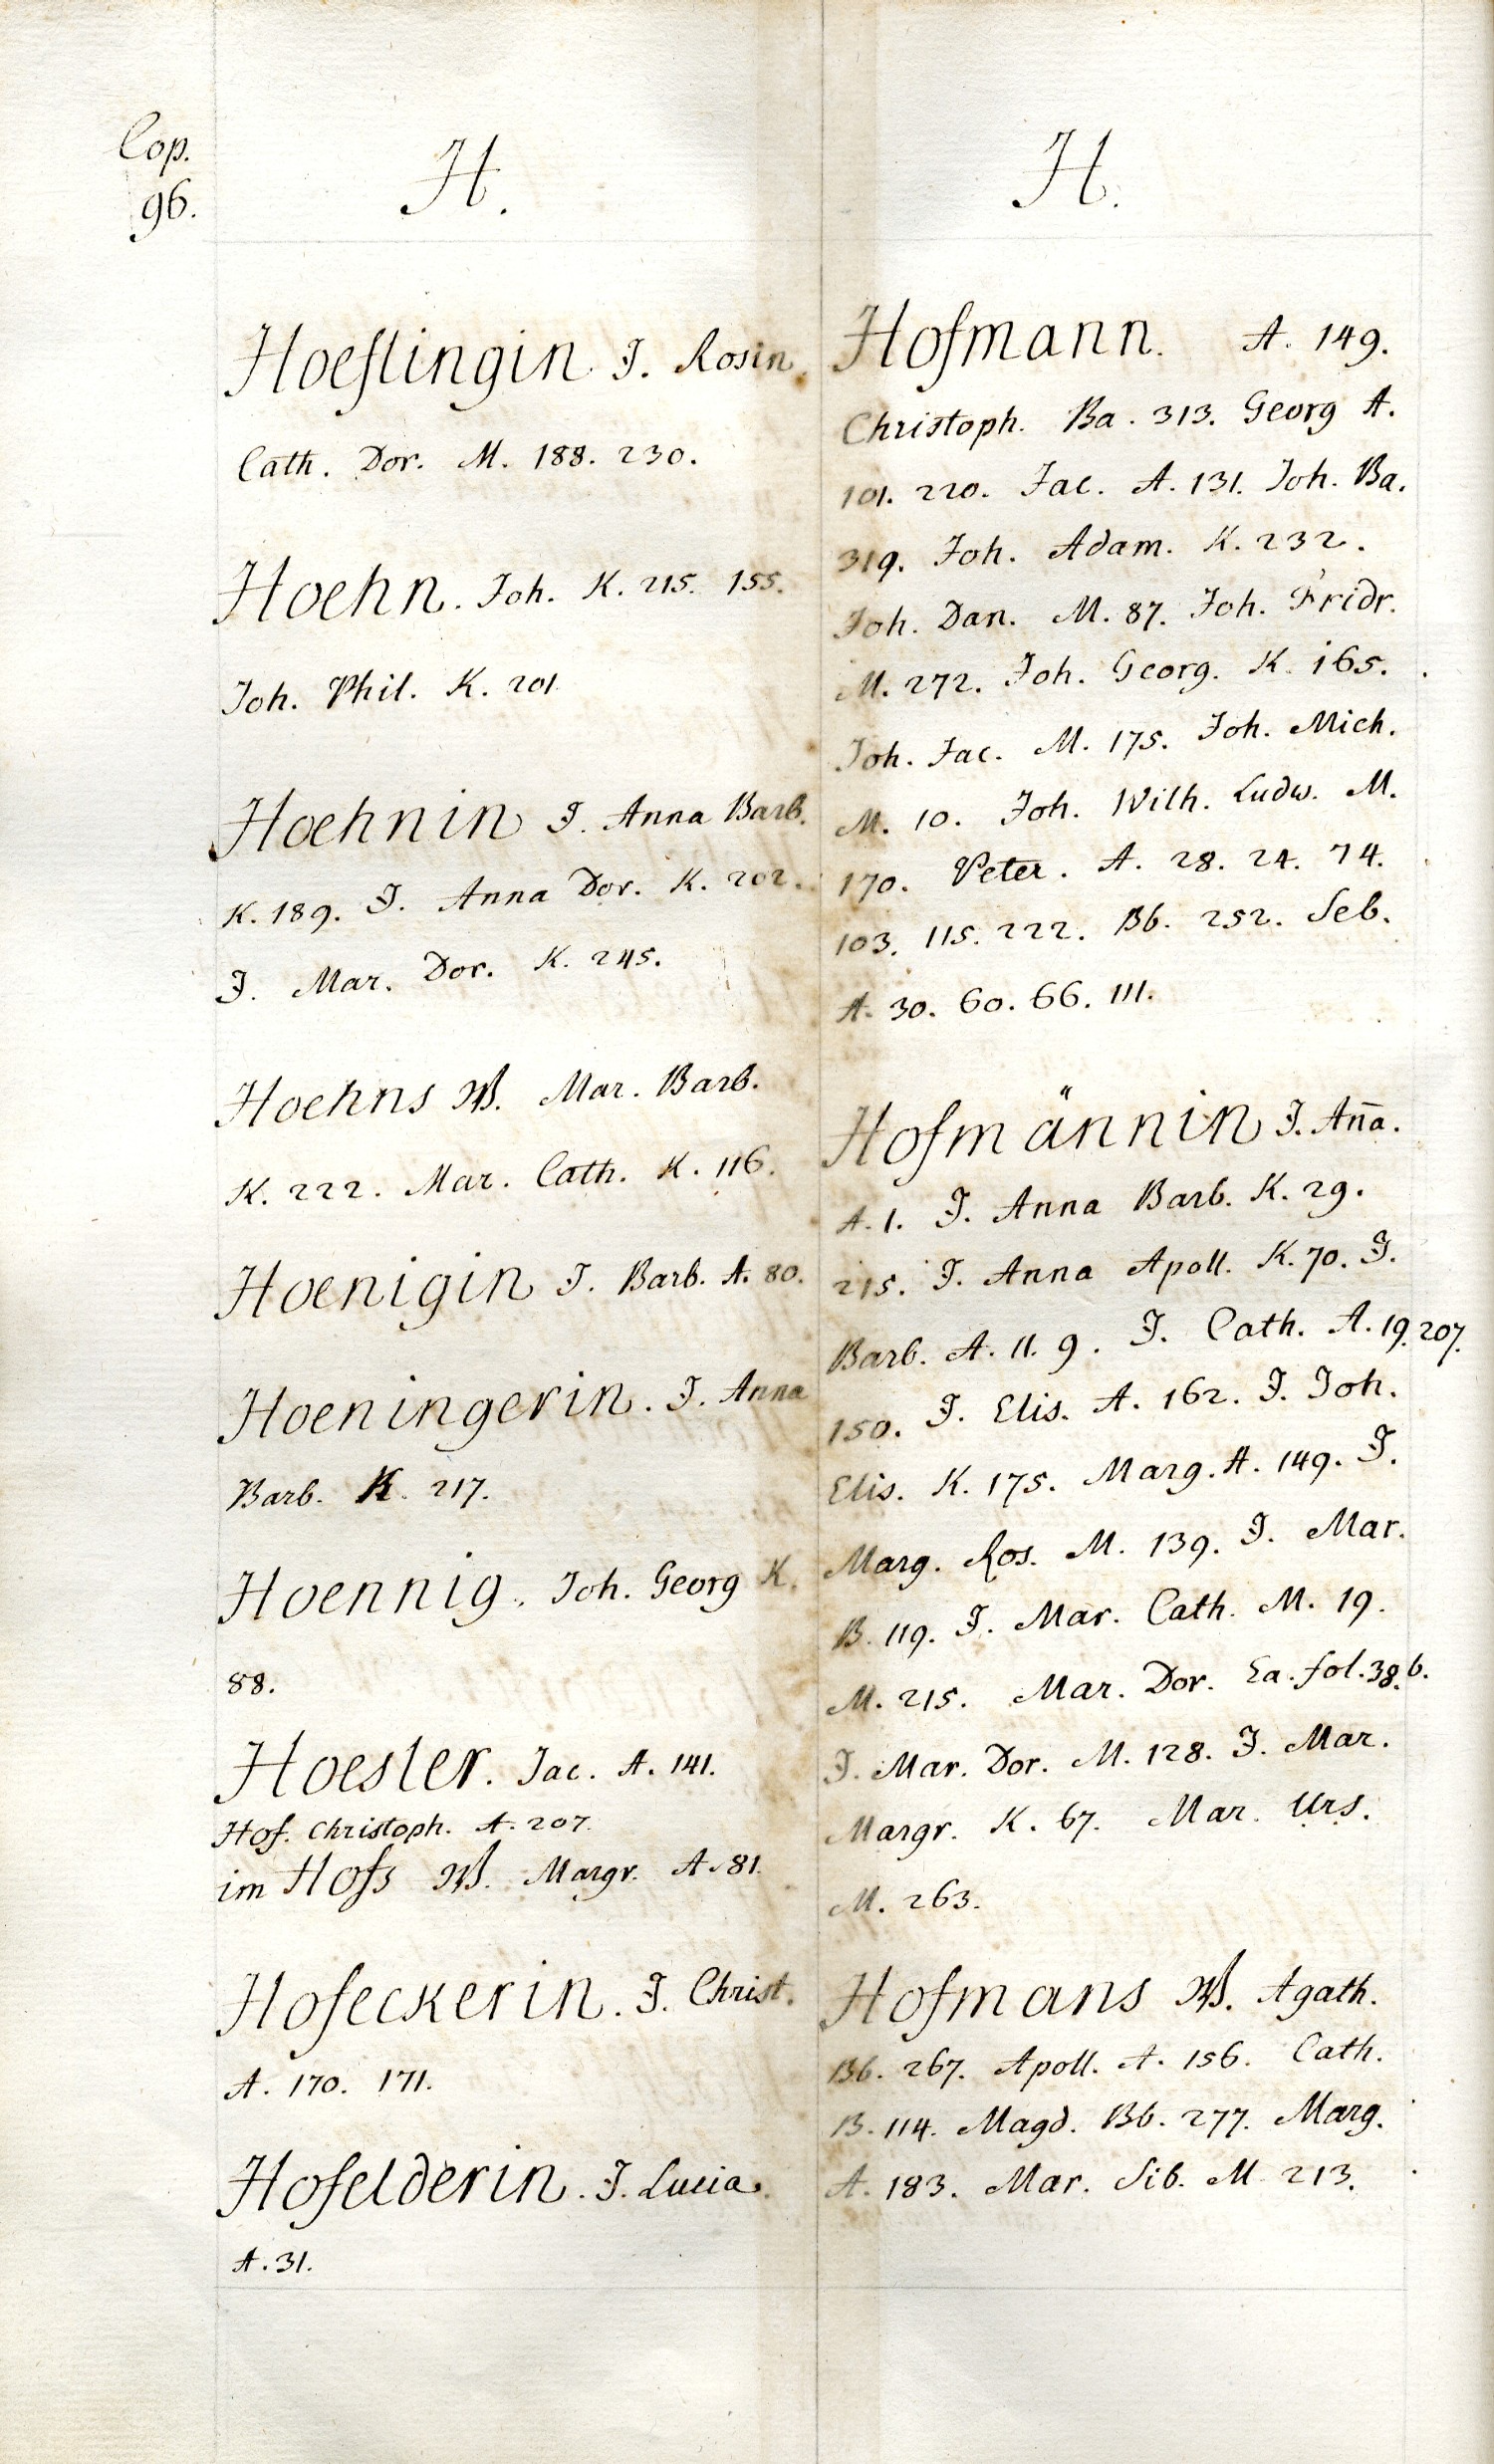 Cop.
96.
H.
Hoeflingin J. Rosin.
Cath. Dor. M. 188. 230.
Hoehn. Joh. K. 215. 155.
Joh. Phil. K. 201
Hoehnin J. Anna Barb.
K. 189. J. Anna Dor. K. 202.
J. Mar. Dor. K. 245.
Hoehns W. Mar. Barb.
K. 222. Mar. Cath. K. 116.
Hoenigin J. Barb. A. 80.
Hoeningerin. J. Anna
Barb. K. 217.
Hoennig. Joh. Georg K.
88.
Hoesler. Jac. A. 141.
Hof. Christoph. A. 207.
im Hofs W. Margr. A. 81.
Hofeckerin. J. Christ.
A. 170. 171.
Hofelderin. J. Lucia.
A. 31.
H.
Hofmann. A. 149.
Christoph. Ba. 313. Georg A.
101. 220. Jac. A. 131. Joh. Ba.
319. Joh. Adam. K. 232.
Joh. Dan. M. 87. Joh. Fridr.
M. 272. Joh. Georg. K. 165.
Joh. Jac. M. 175. Joh. Mich.
M. 10. Joh. Wilh. Ludw. M.
170. Peter. A. 28. 24. 74.
103. 115. 222. Bb. 252. Seb.
A. 30. 60. 66. 111.
Hofmännin J. An̄a.
A. 1. J. Anna Barb. K. 29.
215. J. Anna Apoll. K. 70. J.
Barb. A. 11. 9. J. Cath. A. 19. 207.
150. J. Elis. A. 162. J. Joh.
Elis. K. 175. Marg. A. 149. J.
Marg. Ros. M. 139. J. Mar.
B. 119. J. Mar. Cath. M. 19.
M. 215. Mar. Dor. Ea. fol. 38. b.
J. Mar. Dor. M. 128. J. Mar.
Margr. K. 67. Mar. Urs.
M. 263.
Hofmans W. Agath.
Bb. 267. Apoll. A. 156. Cath.
B. 114. Magd. Bb. 277. Marg.
A. 183. Mar. Sib. M. 213.